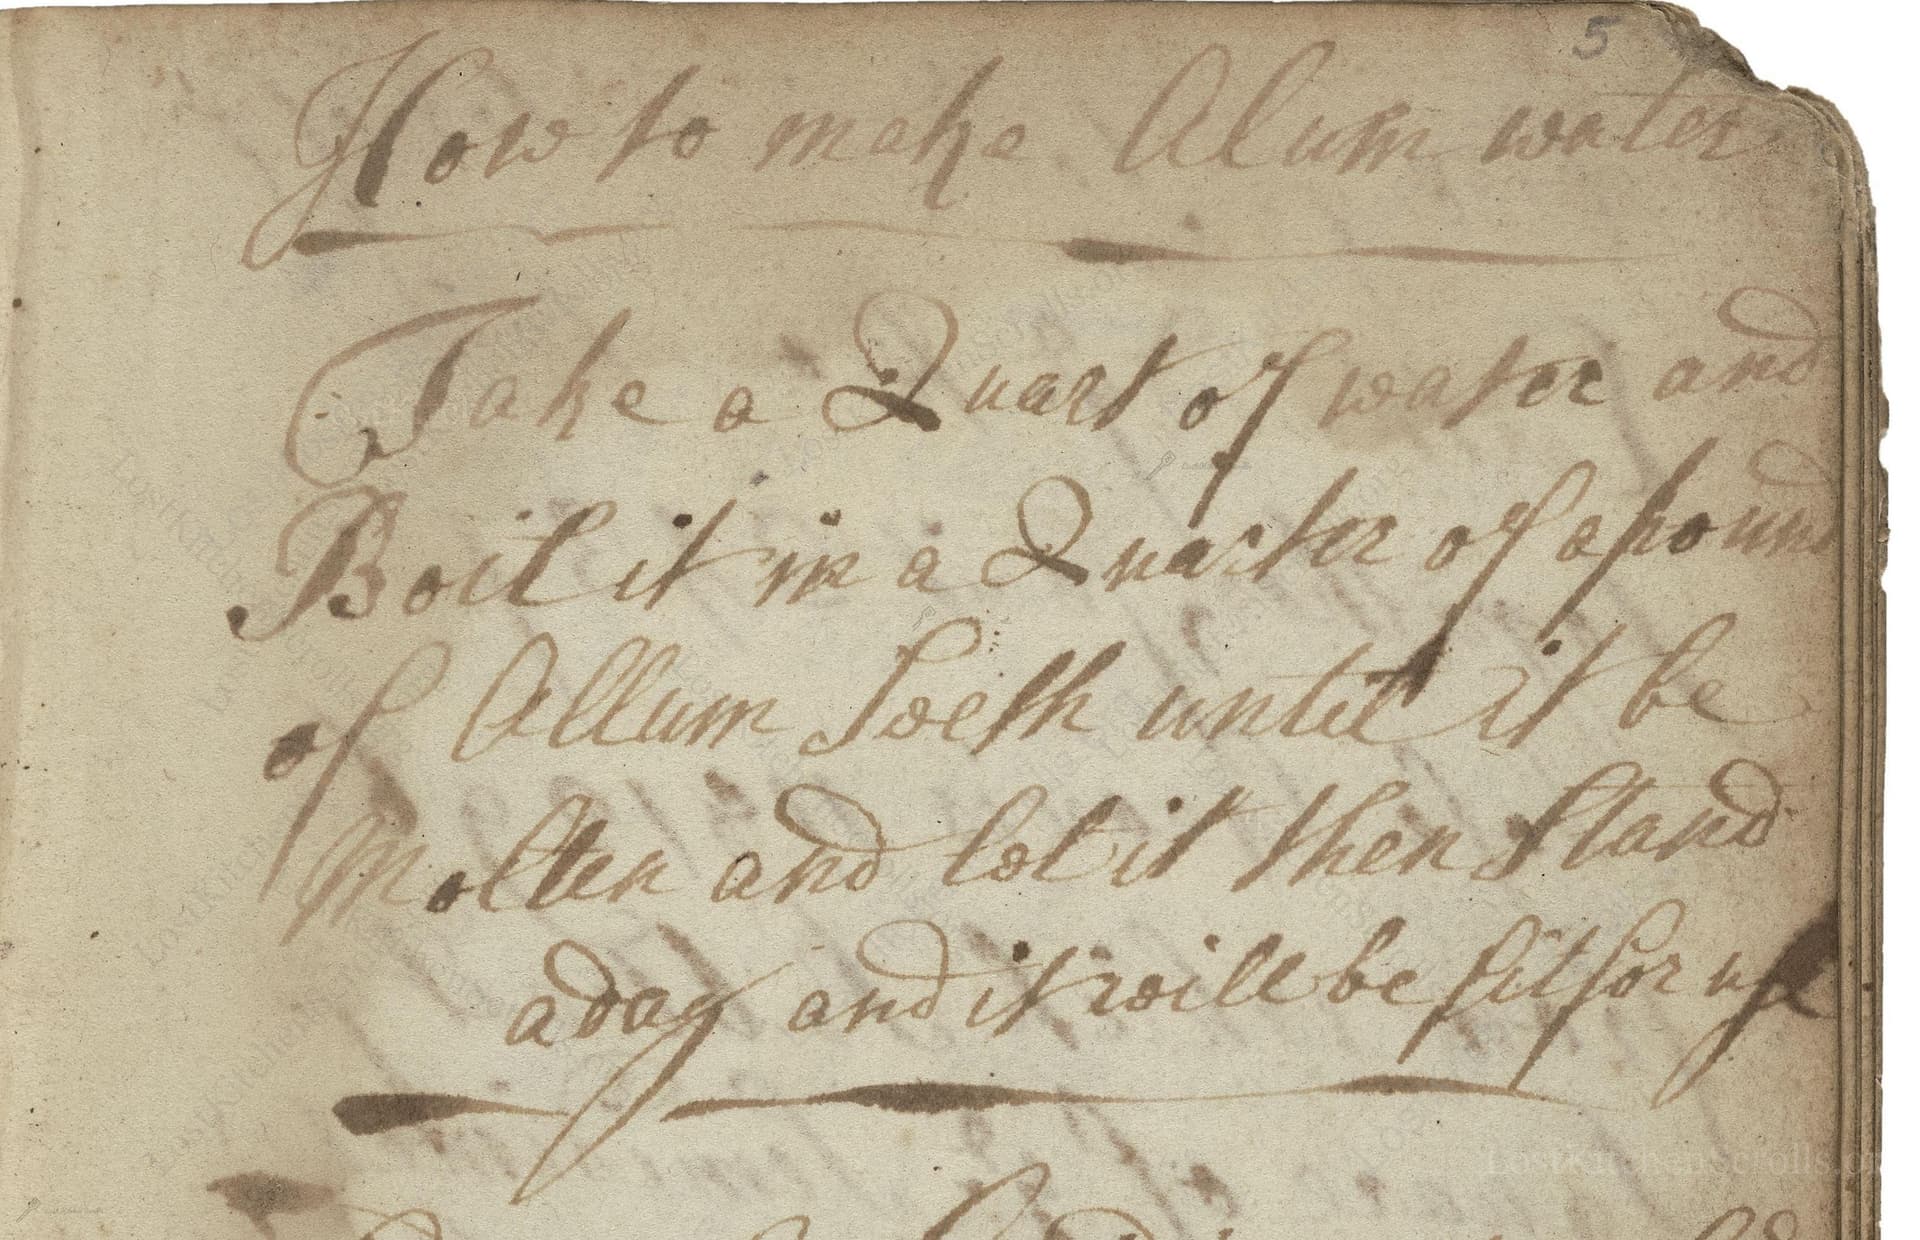 5
How to make Alum water
Take a Quart of water and
Boil it in a Quarter of a pound
of Allum Seeth until it be
Molten and let it then Stand
a day and it will be fit for use
LostKitchenScrolls.c